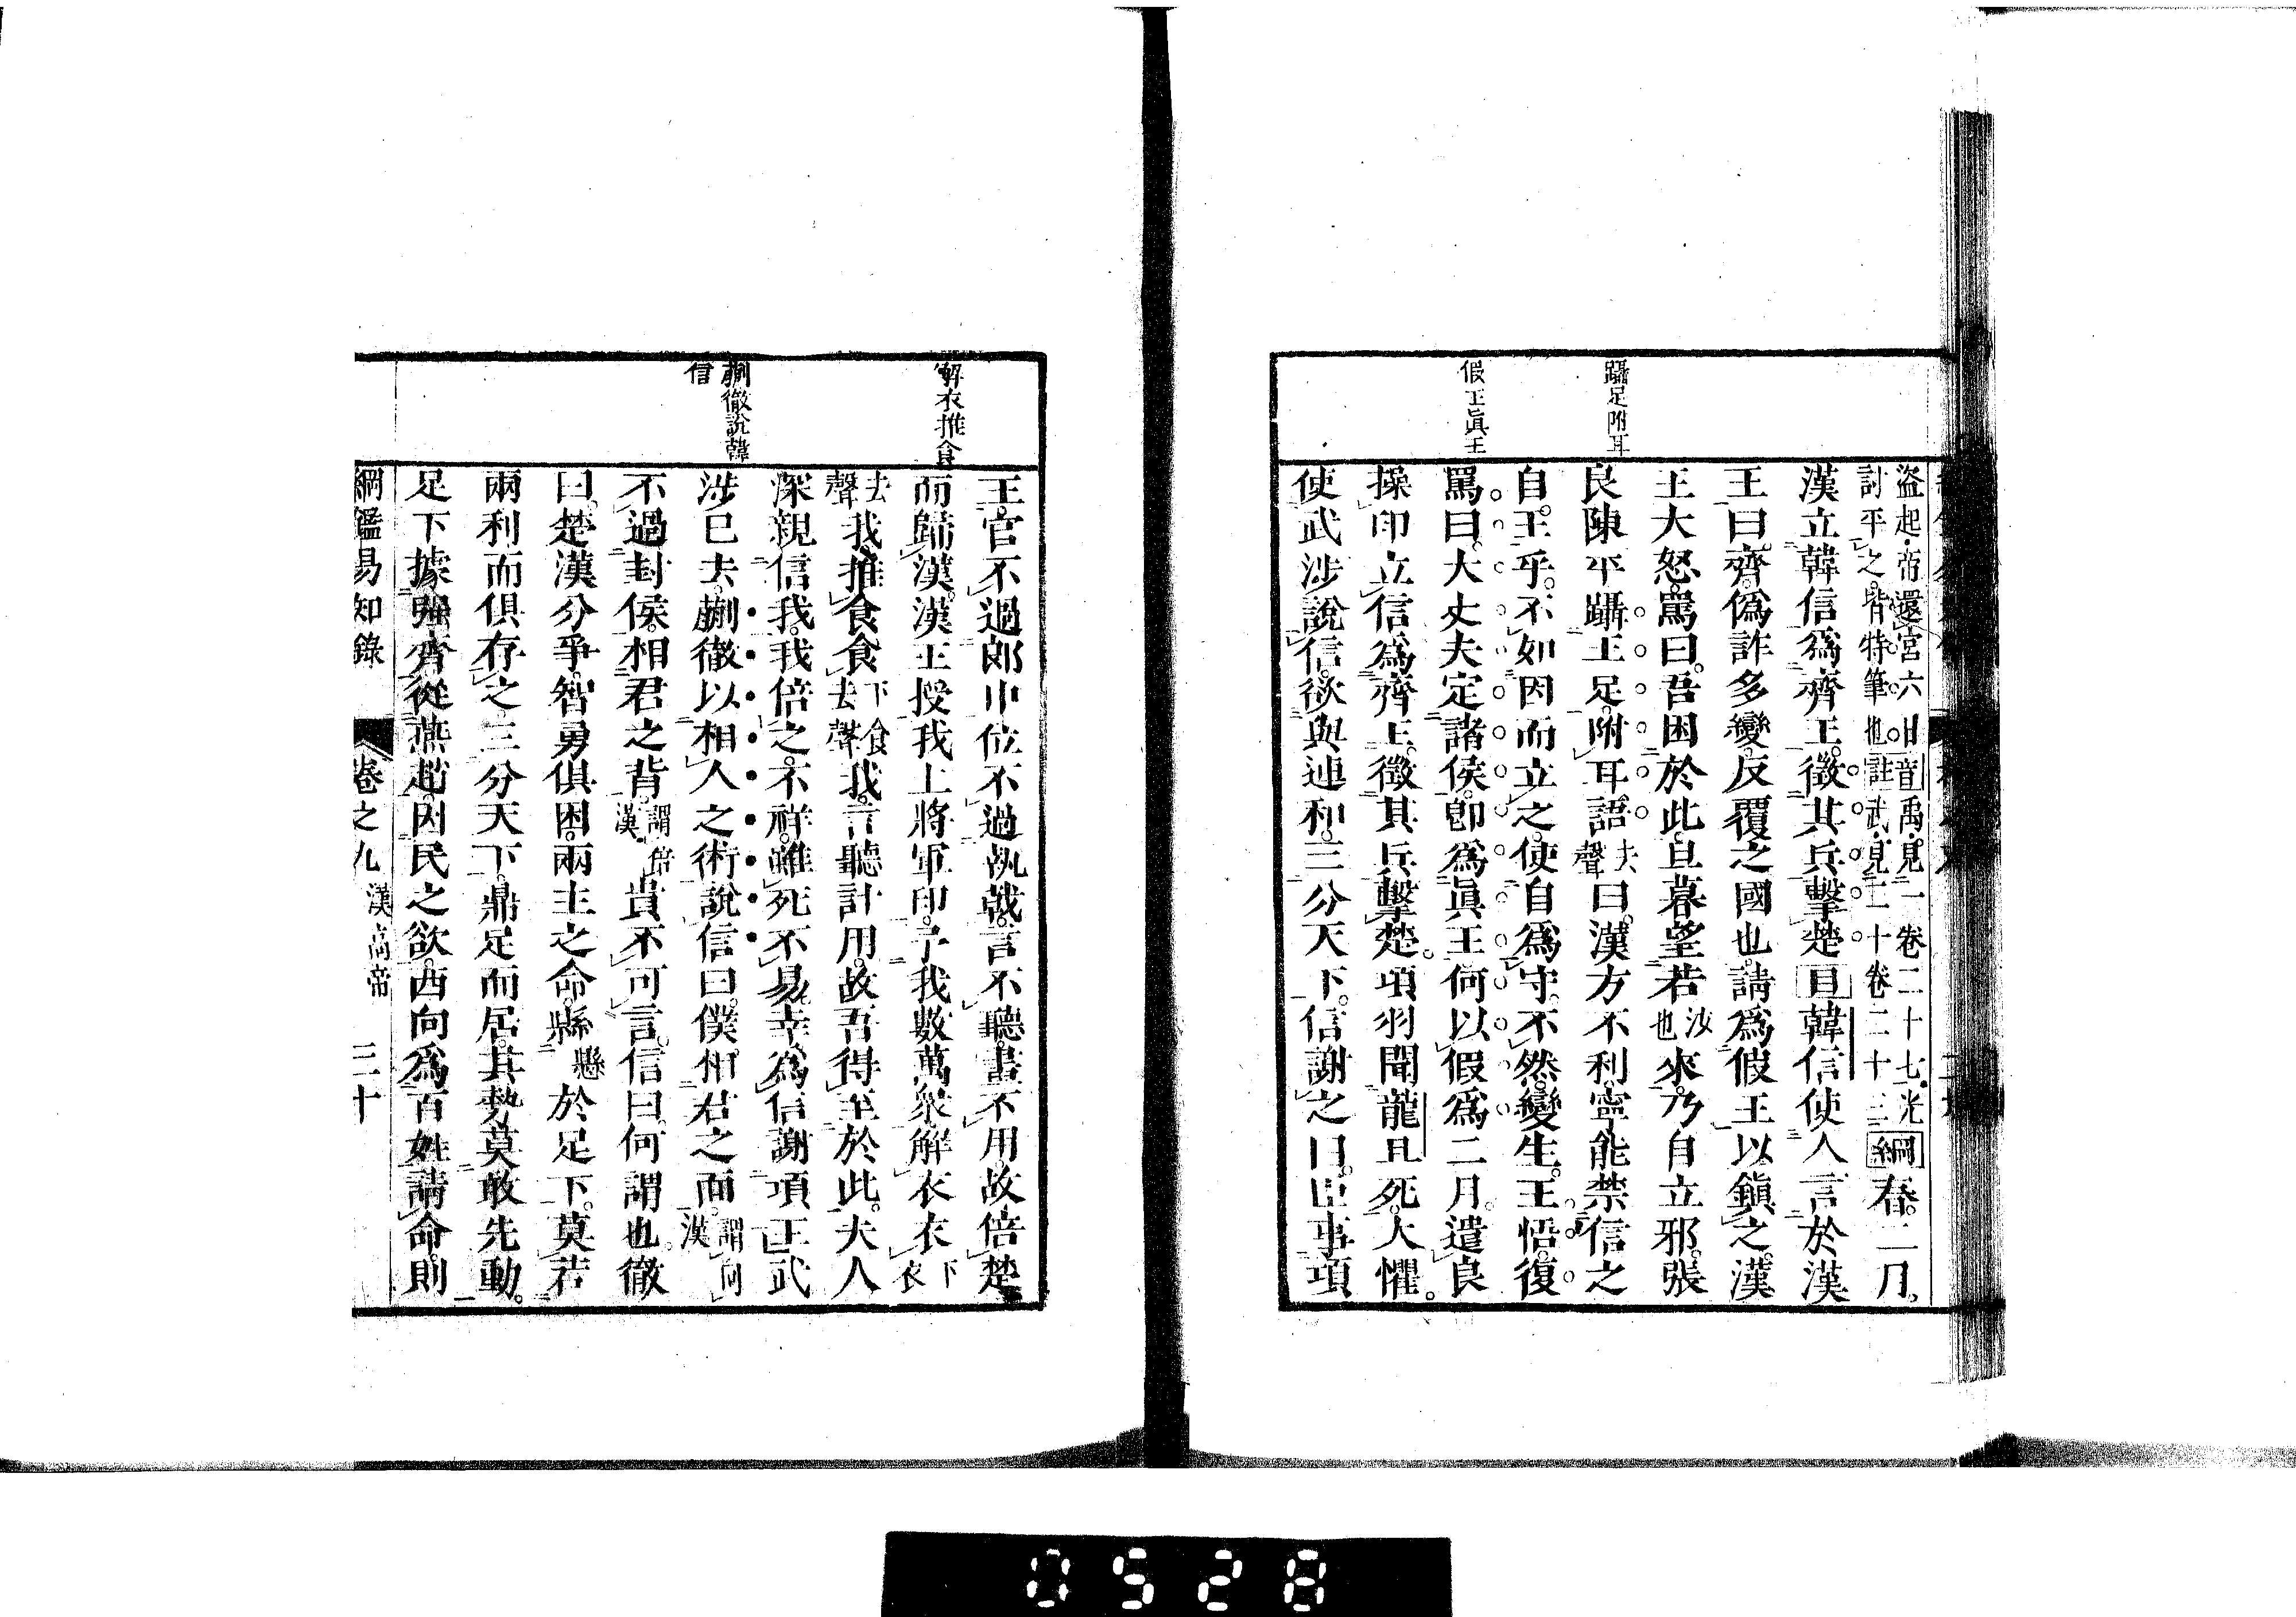 躡足附耳
假王眞王
盜起帝還宮六日音禹見一卷二十七光
討平之皆特筆也註武見二十卷二十三綱春二月
漢立韓信爲齊王徵其兵擊楚目韓信使人言於漢
王曰齊僞詐多變反覆之國也請爲假王以鎭之漢
王大怒罵曰吾困於此旦暮望若汝也來乃自立邪張
良陳平躡王足附耳語去聲曰漢方不利寧能禁信之
自王乎不如因而立之使自爲守不然變生王悟復
罵曰大丈夫定諸侯卽爲眞王何以假爲二月遣良
操印立信爲齊王徵其兵擊楚項羽聞龍且死大懼
使武涉說信欲與連和三分天下信謝之曰臣事項
解衣推食
蒯徹說韓
信
王官不過郎中位不過執戟言不聽畫不用故倍楚
而歸漢漢王授我上將軍印予我數萬衆解衣衣下衣
去聲我推食食下食去聲我言聽計用故吾得至於此夫人
深親信我我倍之不祥雖死不易幸爲信謝項王武
涉已去蒯徹以相人之術說信曰僕相君之面謂向漢
不過封侯相君之背謂倍漢貴不可言信曰何謂也徹
曰楚漢分爭智勇俱困兩主之命縣懸於足下莫若
兩利而俱存之三分天下鼎足而居其勢莫敢先動
足下據强齊從燕趙因民之欲西向爲百姓請命則
綱鑑易知錄 卷之九 漢高帝 三十
0528